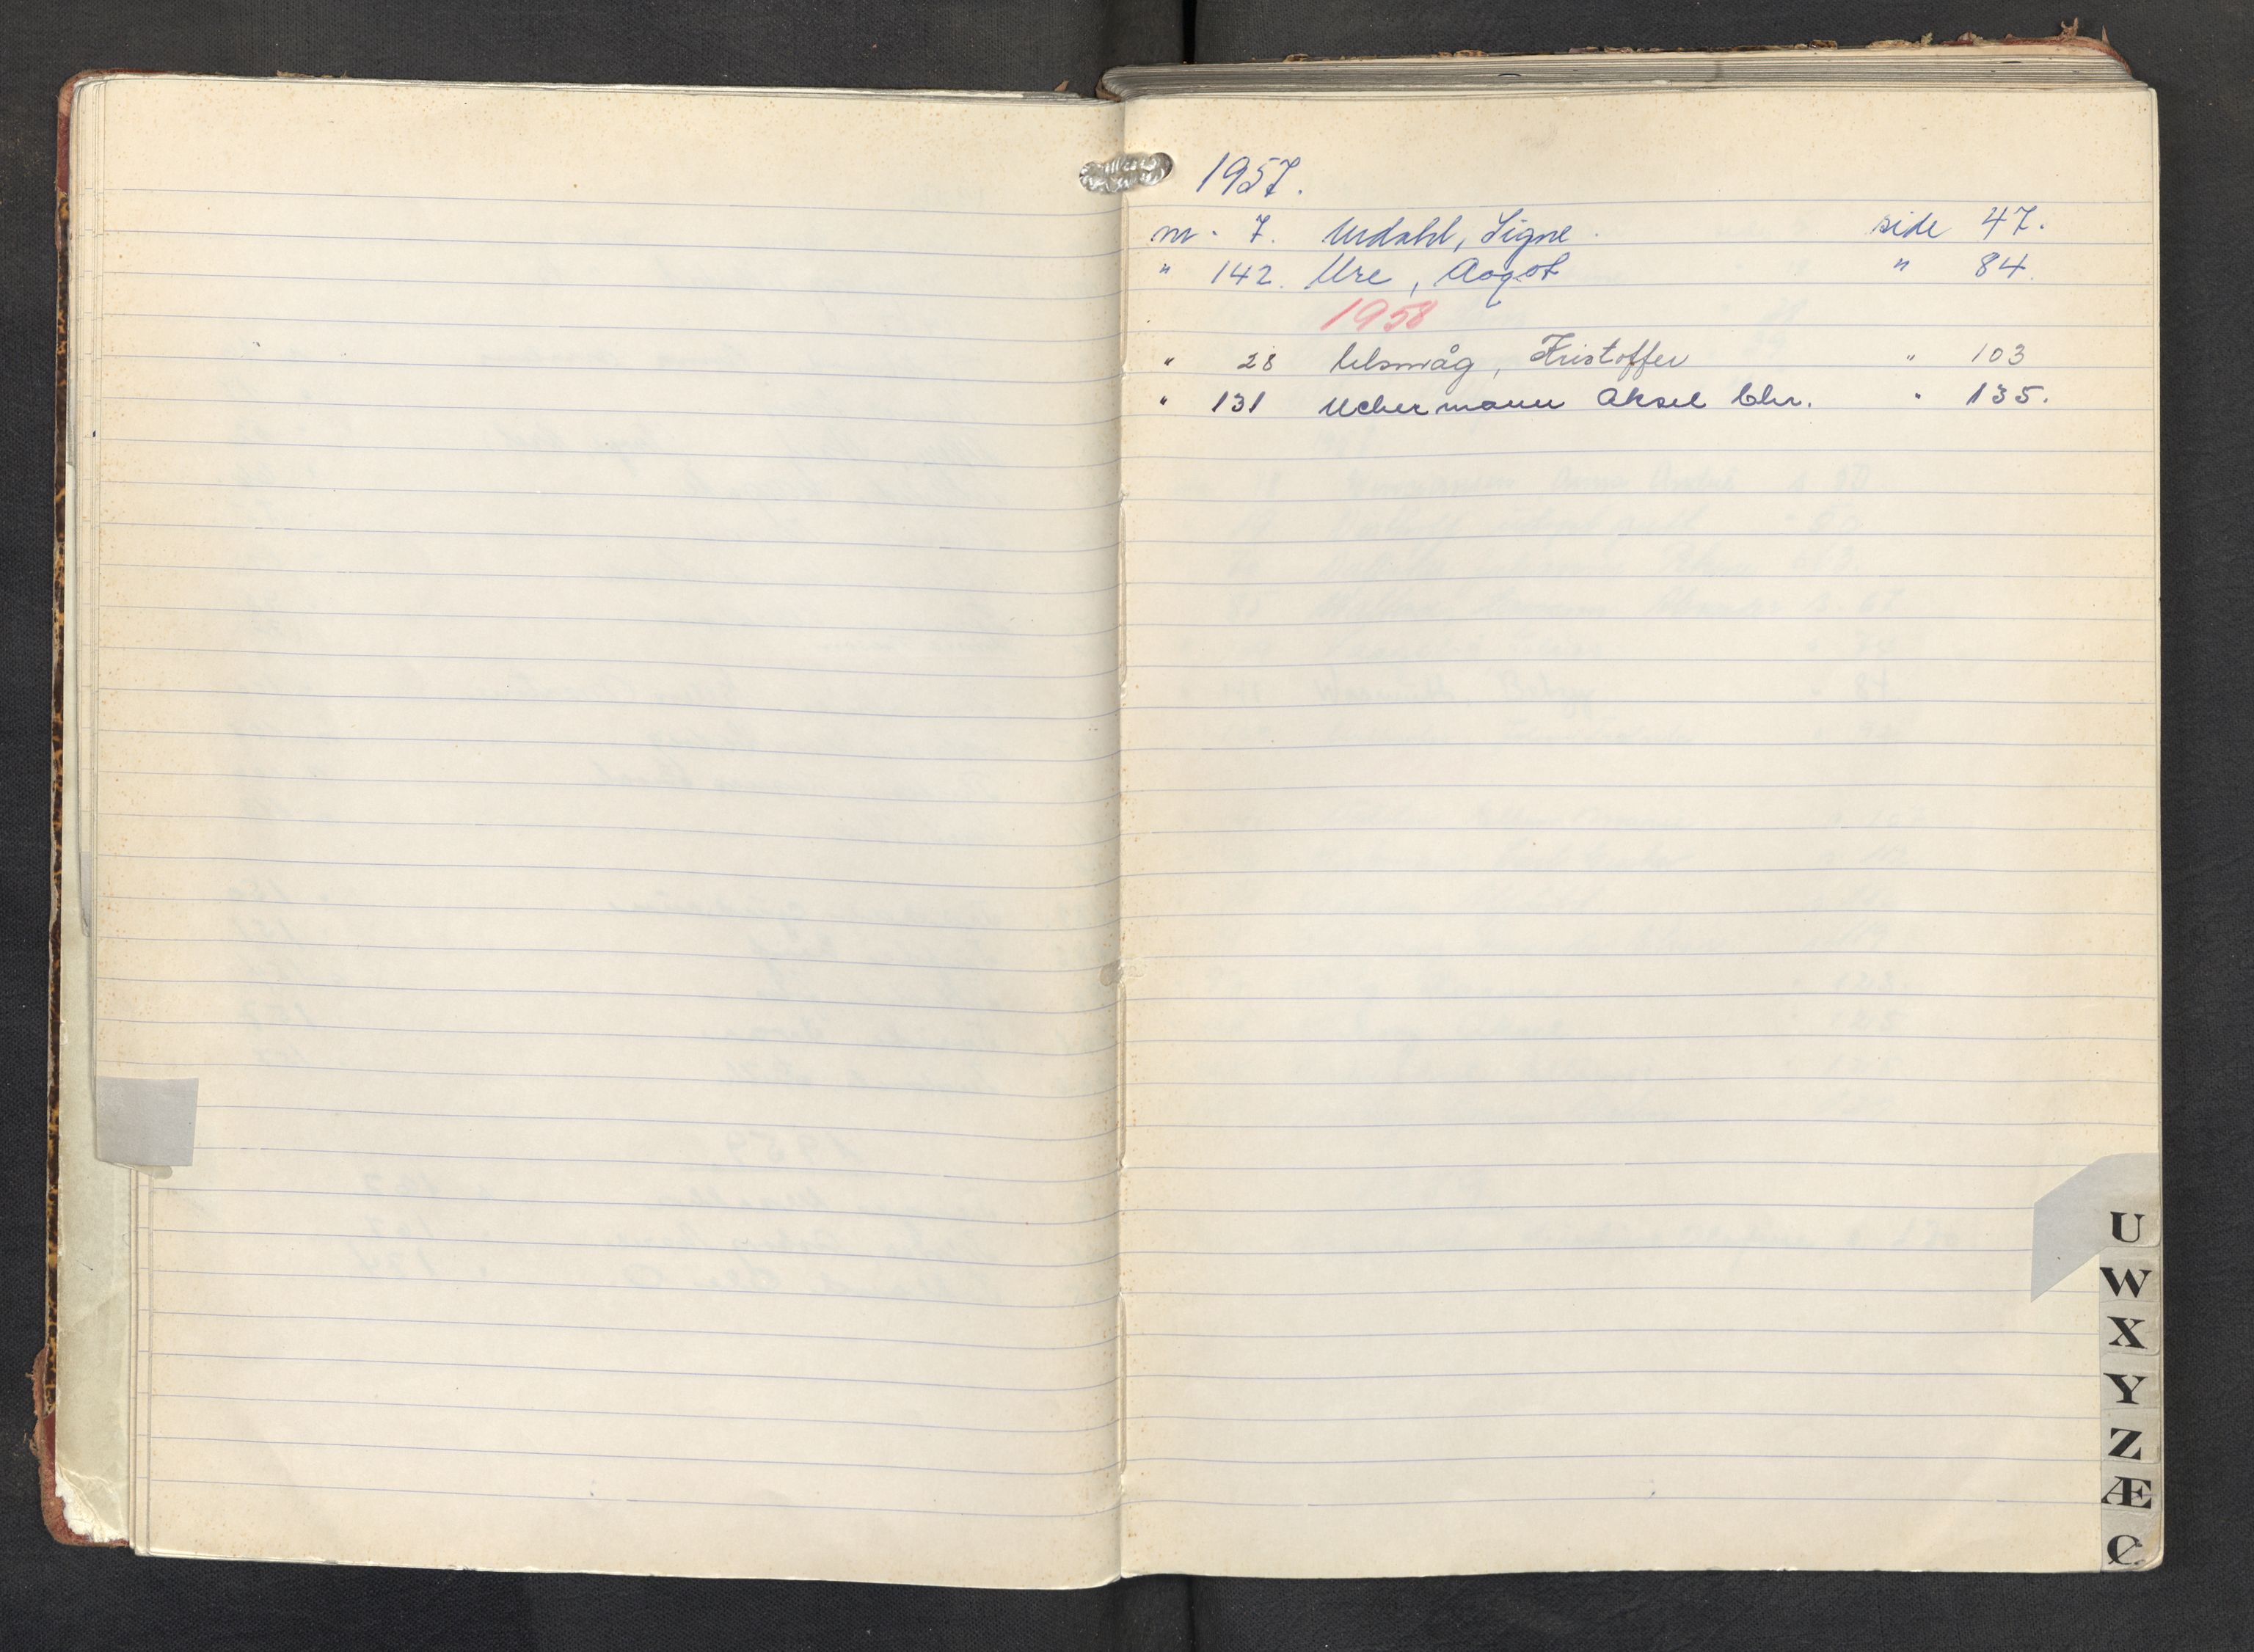 1957.
nr. 7. Urdahl, Signe. side 47.
" 142. Ure, Aagot " 84.
1958
" 28 Ulsmåg, Kristoffer " 103
" 131 Uchermann Aksel Chr. " 135.
U
W
X
Y
Z
Æ
Ø